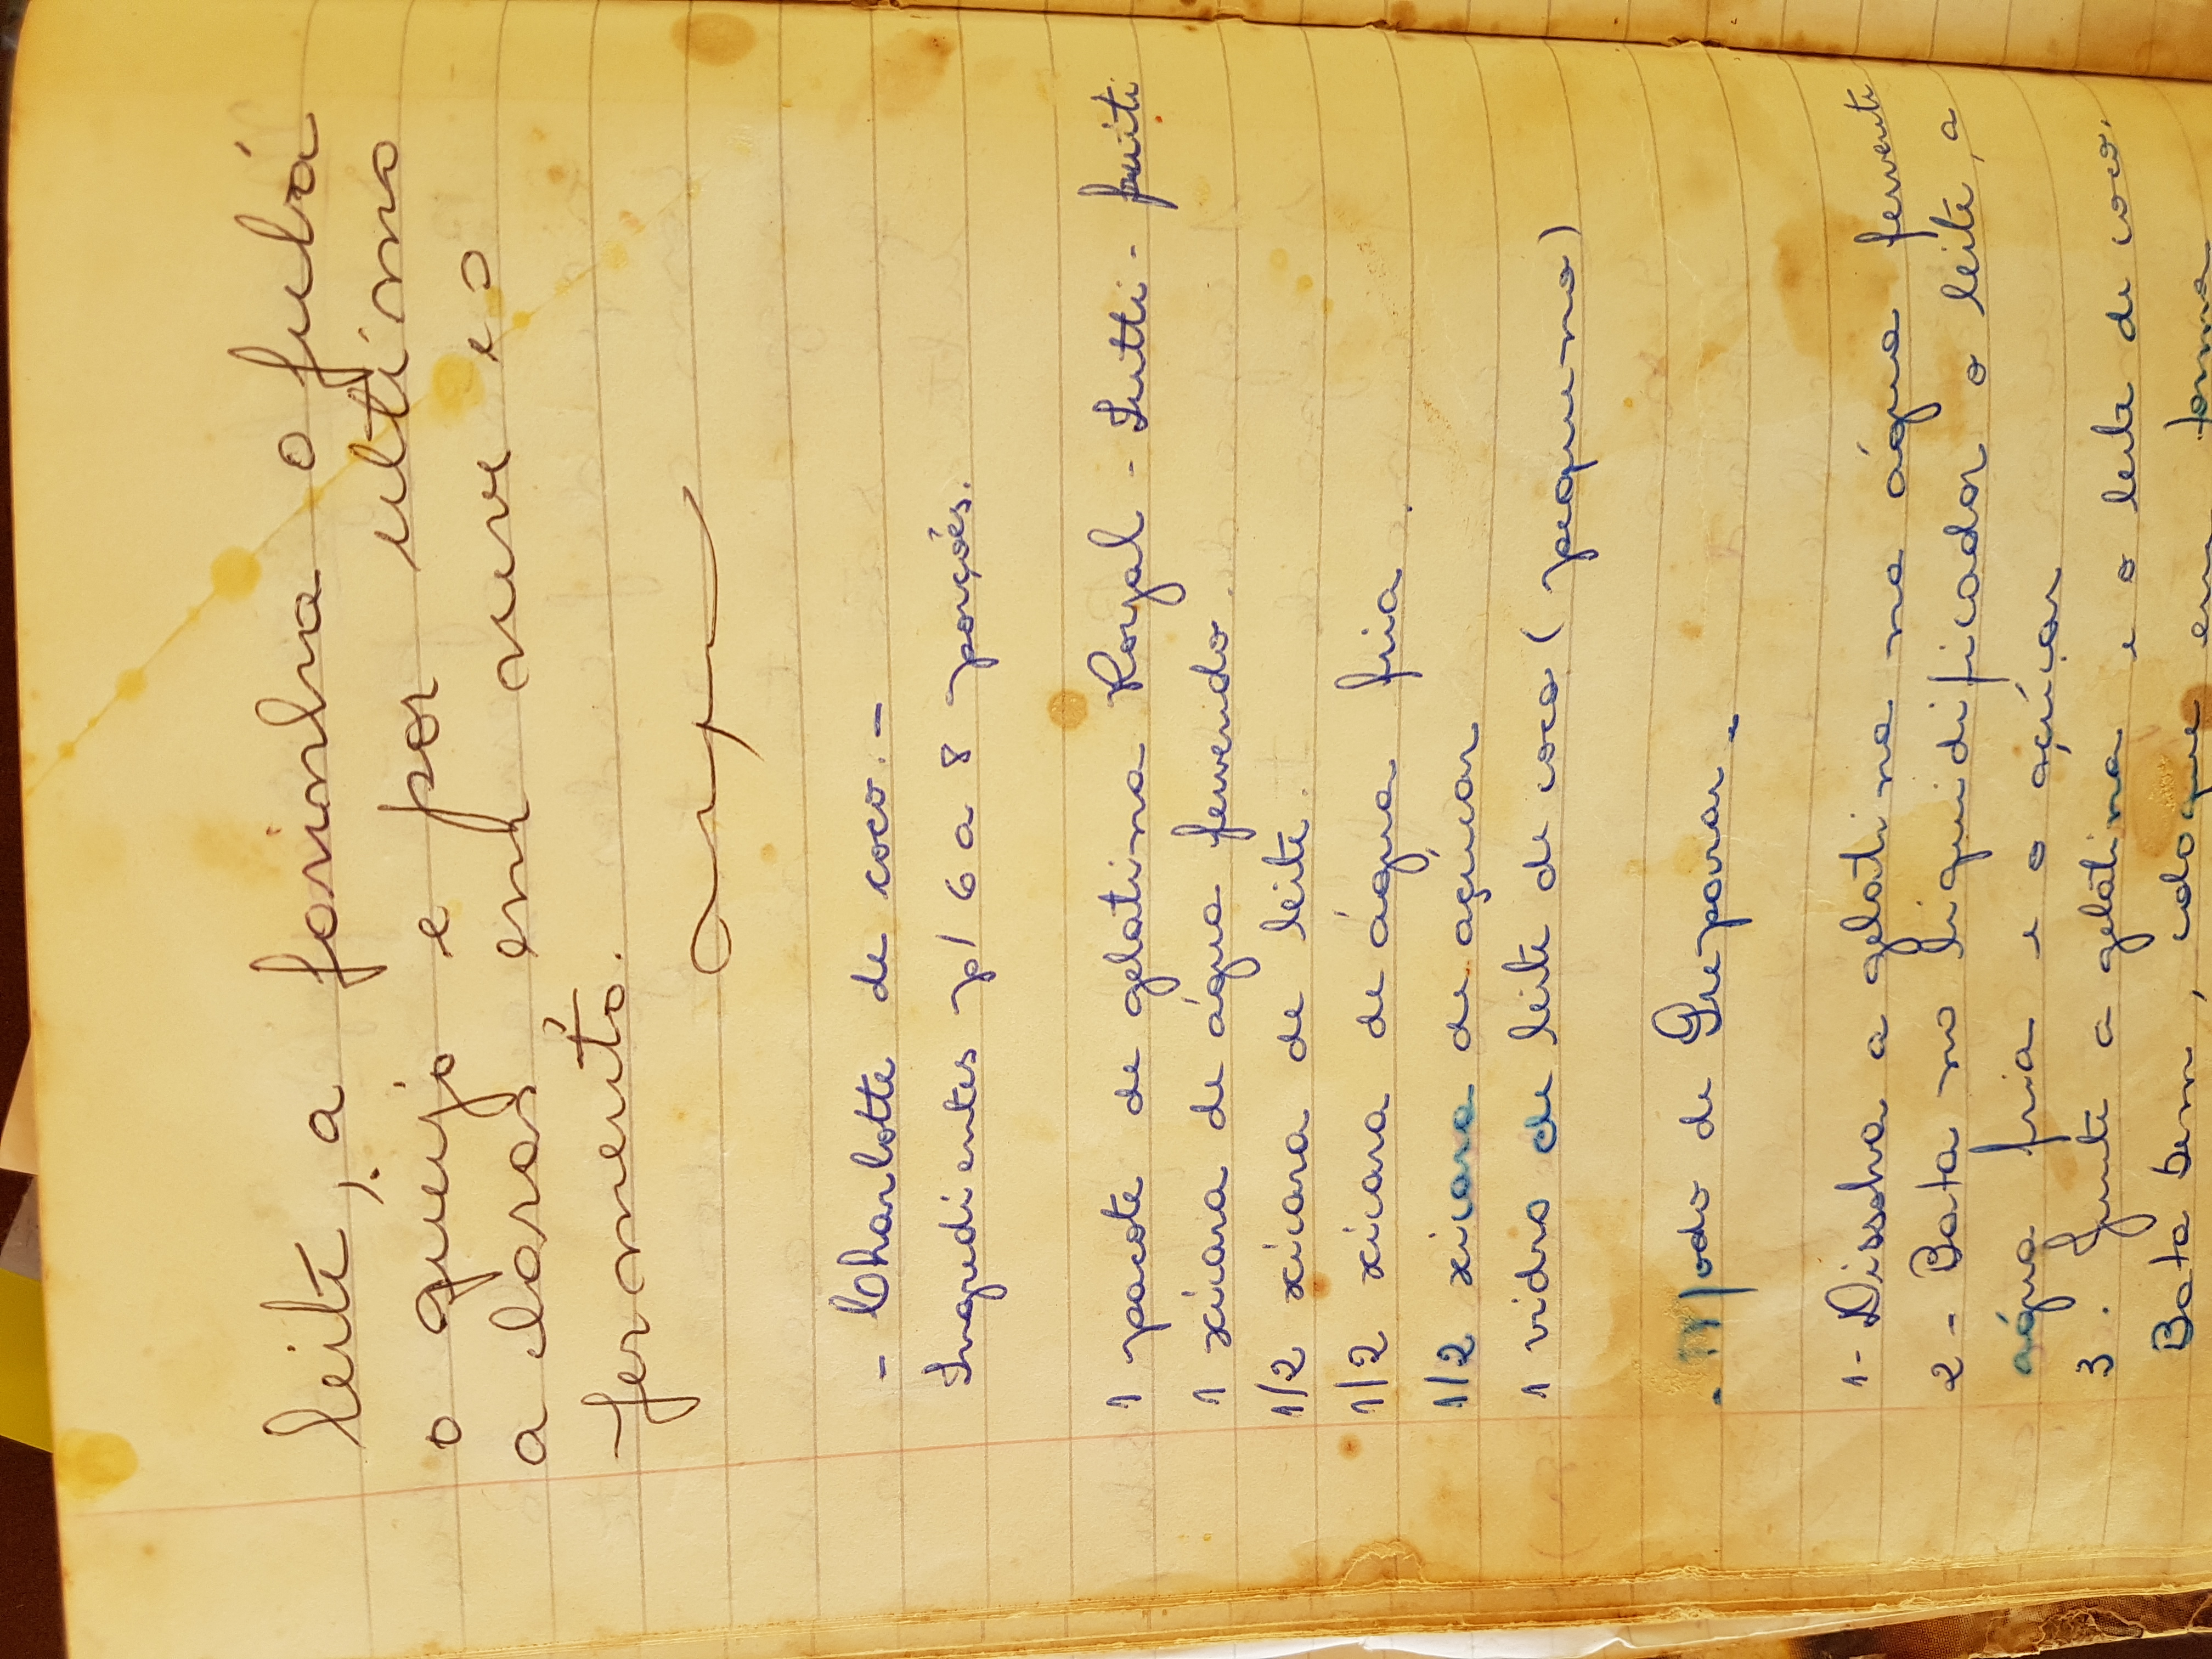 leite, a farinha o fubá
o queijo e por ultimo
a claras, em neve e o
fermento.
- Charlotte de coco. -
Ingredientes p/ 6 a 8 porções.
1 pacote de gelatina Royal - Tutti - fruiti
1 xícara de água fervendo.
1/2 xícara de leite.
1/2 xícara de água fria.
1/2 xícara de açúcar
1 vidro de leite de coco (pequeno)
- Modo de Preparar -
1- Dissolva a gelatina na água fervente
2 - Bata no liquidificador o leite, a
água fria e o açúcar
3. Junte a gelatina e o leite de coco.
Bata bem, coloque em forma